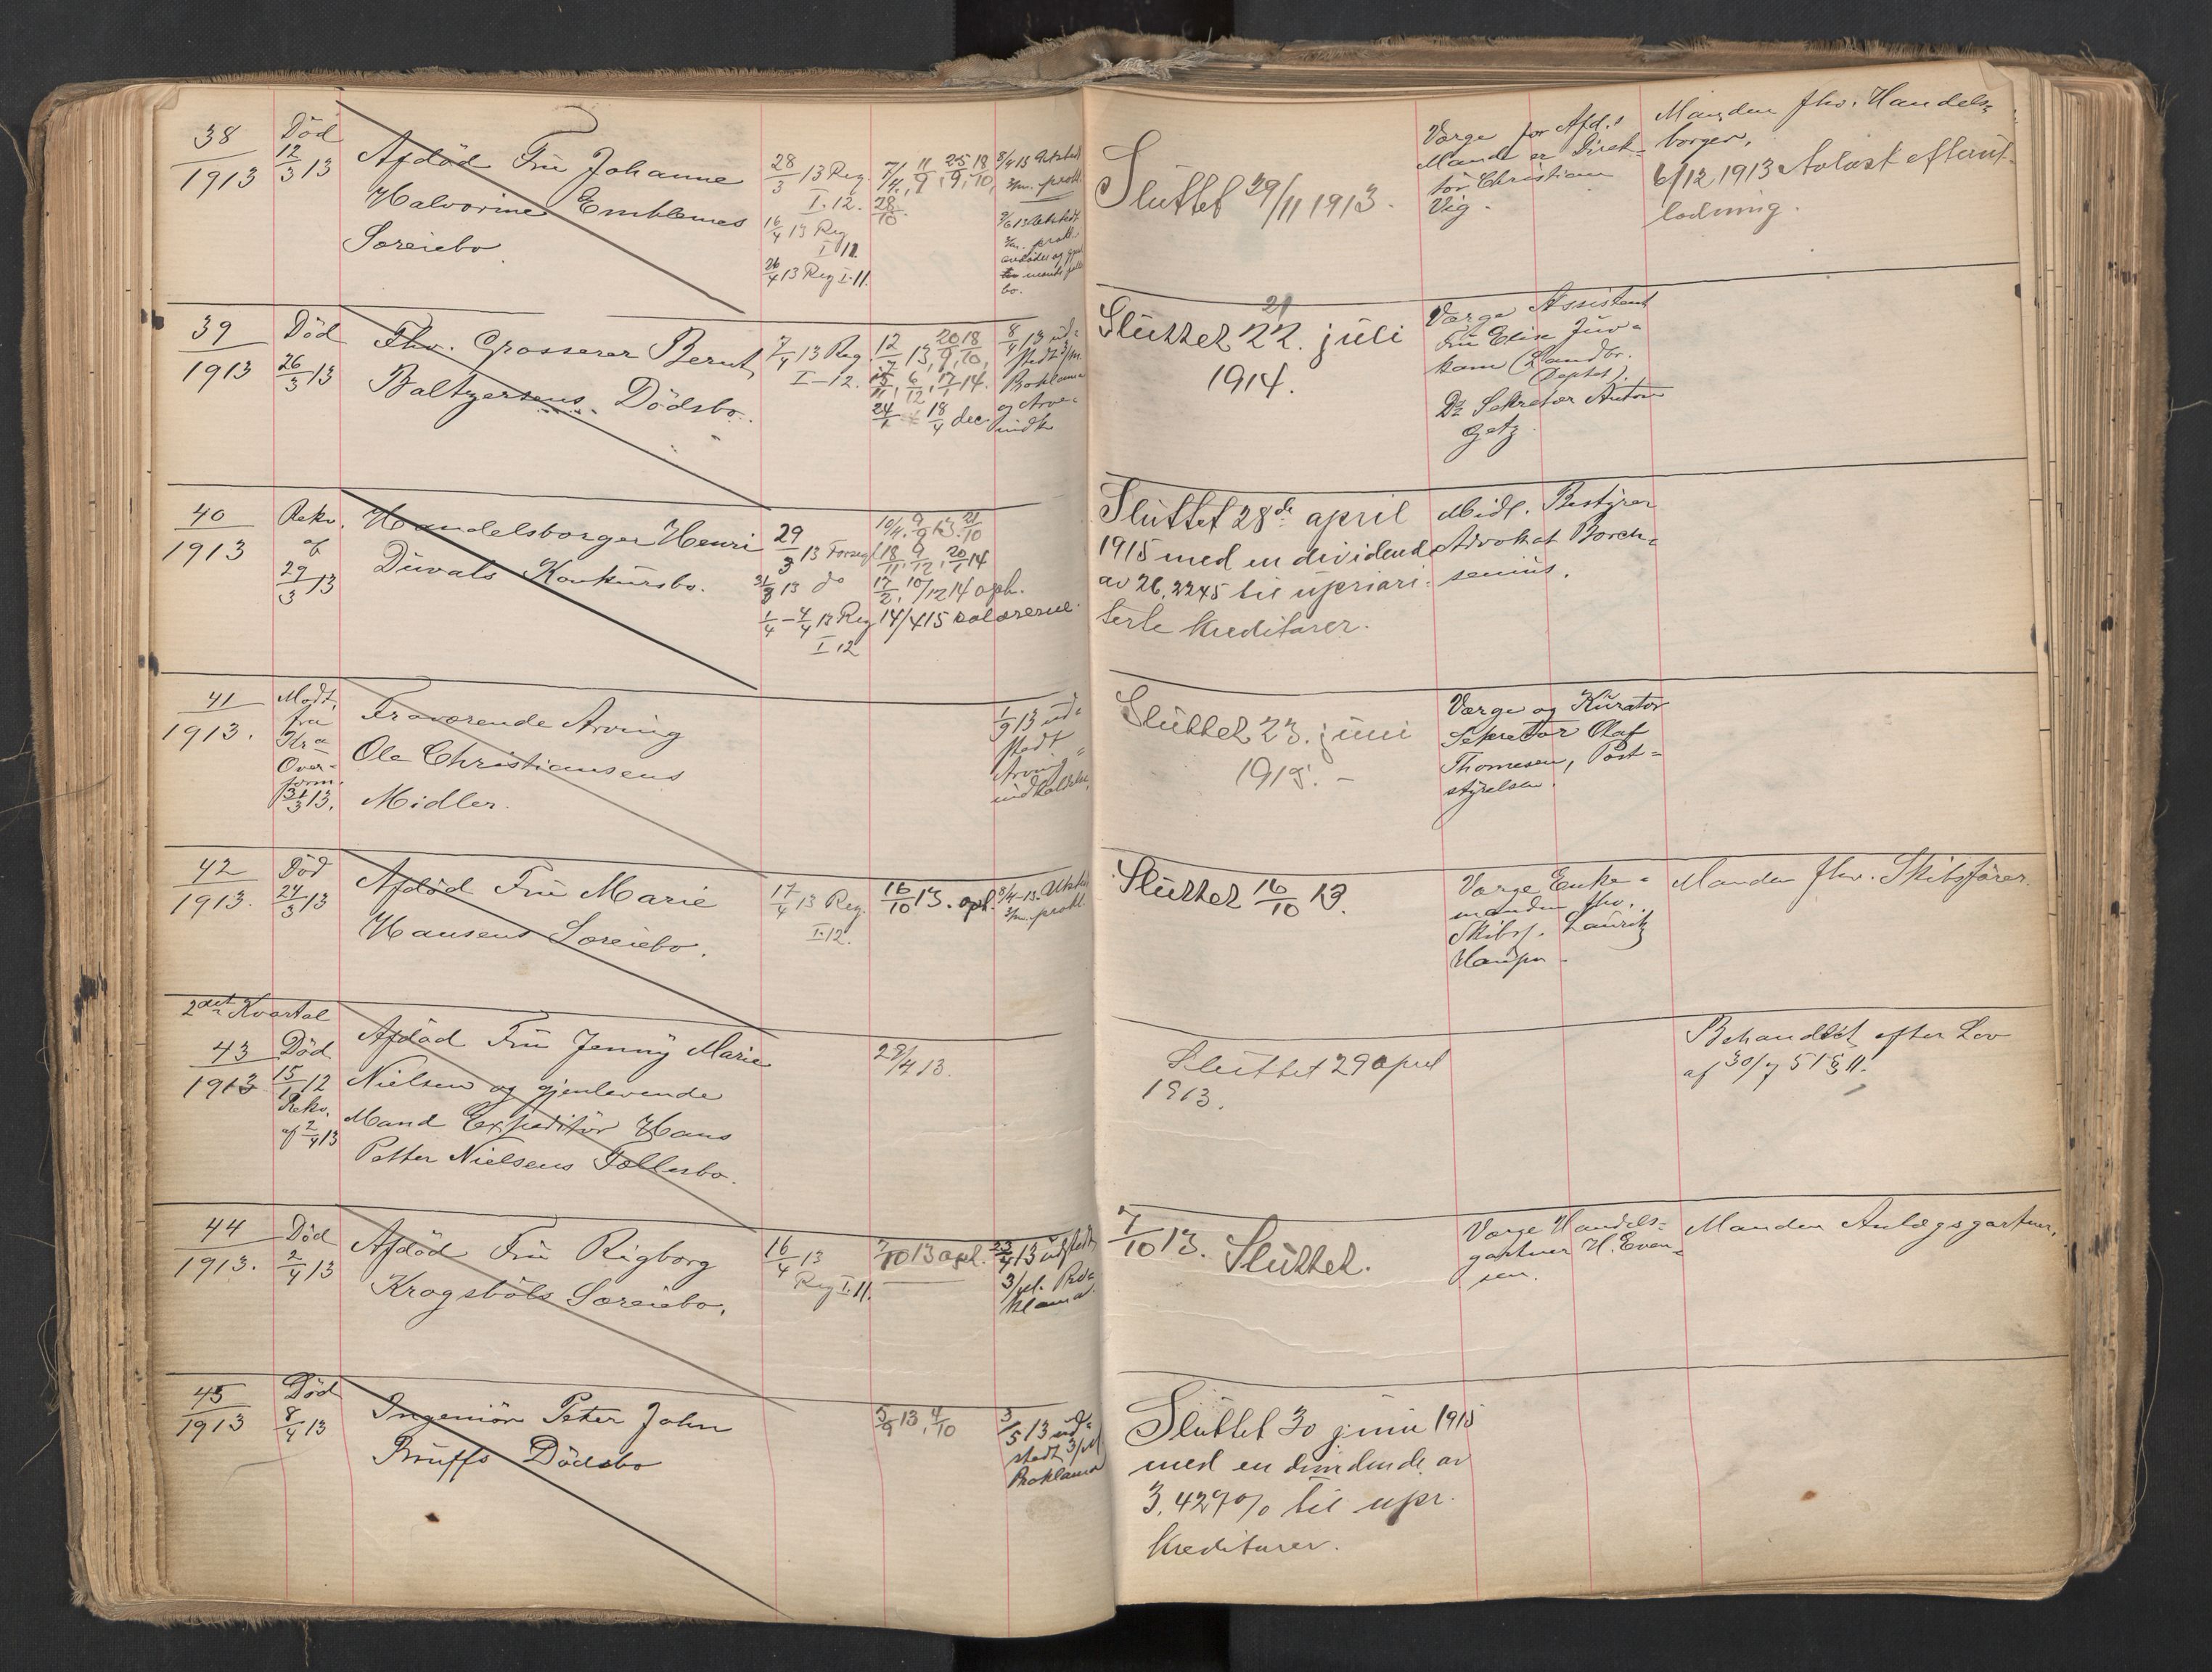 38
1913
Död
12/3 13
Afdöd Frü Johanne
Halvorine Emblemes
Særeiebo.
28/3 13 Reg.
I. 12.
16/4 13 Reg
I 11.
26/4 13 Reg I. 11.
28/10.
8/4 13 Utstedt
3/m. prokl.
bo.
Sluttet 29/11 1913.
Værge for Afd.s
Mand er Direk-
tör Christian
Vig.
Manden fhv. Handels-
borger.
6/12 1913 Avlæst
39
1913
Död
26/3 13
Fhv. Grosserer Bernt
Baltzersens Dödsbo.
7/4 13 Reg.
I-12.
12/7 13, 20/9, 18/10,
15/11, 6/12, 17/1 14.
18/4 dec
8/4 13 ud-
stedt 3/m.
Proklama
og Arve-
indk
21
Sluttet 22. juli
1914.
Værge Assistent
Frü Elise Juv-
kam (Landbr.
Deptet).
Do Sekretær Anton
Getz
40
1913
Rekv.
af
29/3 13
Handelsborger Henri
Düvals Konkürsbo.
29/3 13 Forsegl
31/3 13 do
1/4 - 4/4 13 Reg
I 12
10/4. 9/9 13. 21/10
18/11, 9/12, 20/1 14
17/2, 10/12 14 oph.
14/4 15 salærerne.
Sluttet 28de april
1915 med en dividende
av 26,2245 til upriori-
terte kreditorer.
Midl. Bestyrer
Advokat Borch-
senius.
41
1913.
Modt.
fra
Kra
Over-
form.
31/3 13.
Fraværende Arving
Ole Christiansens
Midler.
1/9 13 ud-
stedt
Arving-
indkaldelse.
Sluttet 23. juni
1915. -
Værge og Kürator
Sekretær Olaf
Thomesen, Post-
styrelsen.
42
1913.
Död
24/3 13
Afdöd Frü Marie
Hansens Særeiebo.
17/4 13 Reg.
I. 12.
16/10 13. opl.
8/4-13. Utstedt
3/m. prokl.
Sluttet 16/10 13.
Værge Enke-
manden fhv.
Skibsf. Lauritz
Hansen
Manden fhv. Skibsförer.
2det Kvartal
43
1913
Död
15/1 12
Rekv.
af 2/4 13
Afdöd Frü Jenny Marie
Nielsen og gjenlevende
Mand Expeditör Hans
Petter Nielsens Fællesbo.
29/4 13.
Sluttet 29 april
1913.
Behandlet efter Lov
af 30/7 51 § 11.
44
1913.
Död
2/4 13
Afdöd Frü Rigborg
Krogsböls Særeiebo.
16/4 13
Reg I. 11.
7/10 13 opl.
23/4 13 udstedt
3/m. Pro-
klama.
7/10 13. Sluttet.
Værge Handels-
gartner H. Even-
sen.
Manden Anlægsgartner.
45
1913
Död
8/4 13
Ingeniör Peter John
Brüffs Dödsbo
5/9 13, 4/10
3/5 13 ud-
stedt 3/M
Proklama
Sluttet 30 juni 1915
med en dividende av
3,429% til upr.
kreditorer.